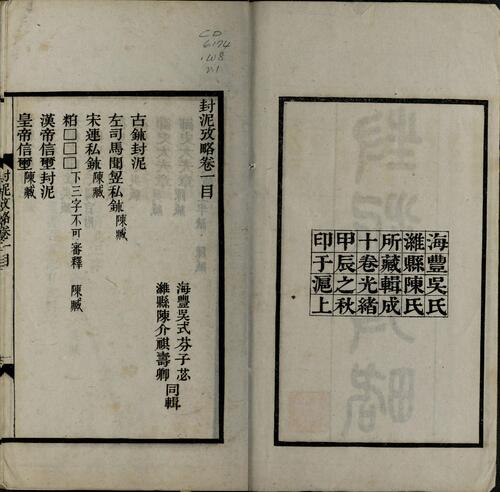 海豐吳氏
濰縣陳氏
所藏輯成
十卷光緒
甲辰之秋
印于滬上
CD
6174
.W8
v.1
封泥攷略卷一目
海豐吳式芬子苾
濰縣陳介祺壽卿
同輯
古鉨封泥
左司馬聞竘私鉨 陳臧
宋連私鉨 陳臧
粕□□□ 下三字不可審釋 陳臧
漢帝信璽封泥
皇帝信璽 陳臧
封泥攷略卷一目